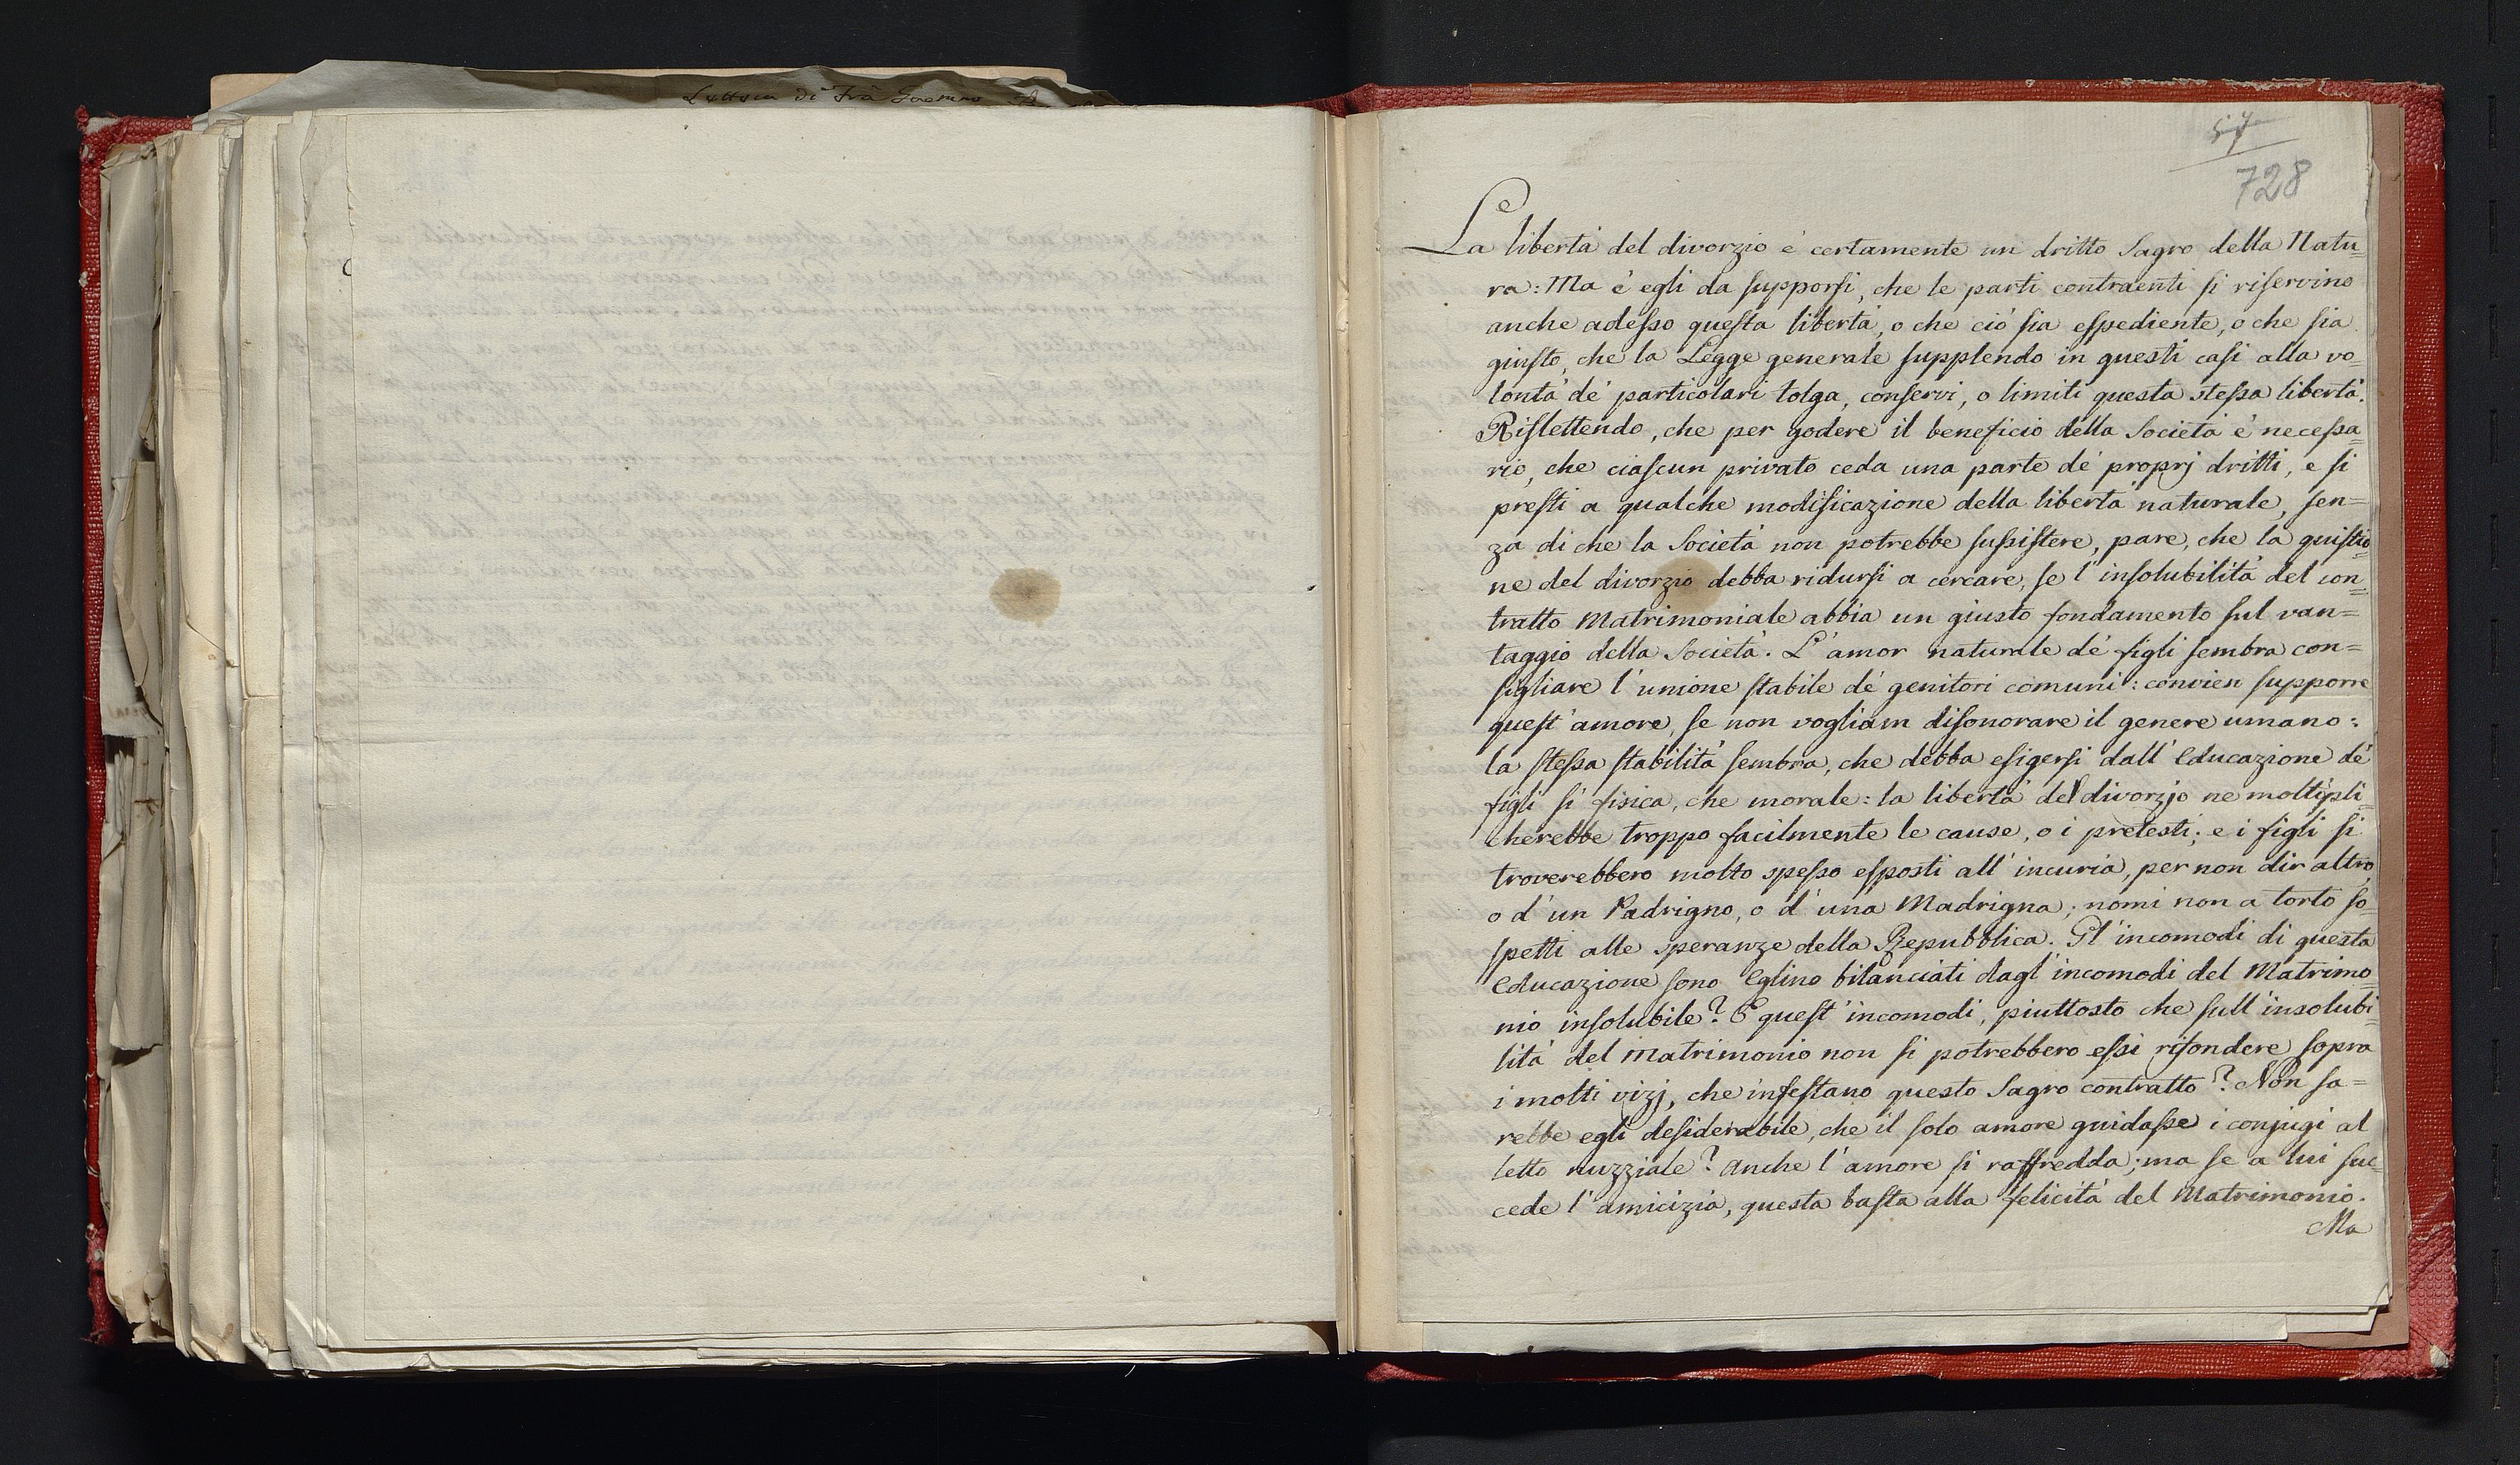 Lettera di Frà
57
728
La libertà del divorzio è certamente un dritto Sagro della Natu=
ra: Ma è egli da supporsi, che le parti contraenti si riservino
anche adesso questa libertà, o che ciò sia espediente, o che sia
giusto, che la Legge generale supplendo in questi casi alla vo=
lontà de' particolari tolga, conservi, o limiti questa stessa libertà.
Riflettendo, che per godere il beneficio della Società è necessa=
rio, che ciascun privato ceda una parte de' proprj dritti, e si
presti a qualche modificazione della libertà naturale, sen=
za di che la Società non potrebbe sussistere, pare, che la quistio=
ne del divorzio debba ridursi a cercare, se l'insolubilità del con=
tratto Matrimoniale abbia un giusto fondamento sul van=
taggio della Società. L'amor naturale de' figli sembra con=
sigliare l'unione stabile de' genitori comuni: convien supporre
quest'amore, se non vogliam disonorare il genere umano:
la stessa stabilità sembra, che debba esigersi dall'educazione de'
figli sì fisica, che morale: la libertà del divorzjo ne moltipli=
cherebbe troppo facilmente le cause, o i pretesti; e i figli si
troverebbero molto spesso esposti all'incuria, per non dir altro
o d'un Padrigno, o d'una Madrigna; nomi non a torto so=
spetti alle speranze della Repubblica. Gl'incomodi di questa
educazione sono eglino bilanciati dagl'incomodi del Matrimo=
nio insolubile? E quest'incomodi, piuttosto che sull'insolubi=
lità del matrimonio non si potrebbero essi rifondere sopra
i molti vizj, che infestano questo Sagro contratto? Non sa=
rebbe egli desiderabile, che il solo amore guidasse i conjugi al
letto nuzziale? Anche l'amore si raffredda; ma se a lui suc=
cede l'amicizia, questa basta alla felicità del Matrimonio.
Ma